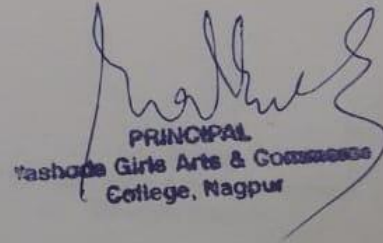 PRINCIPAL
Yashoda Girls Arts & Commerce
College, Nagpur